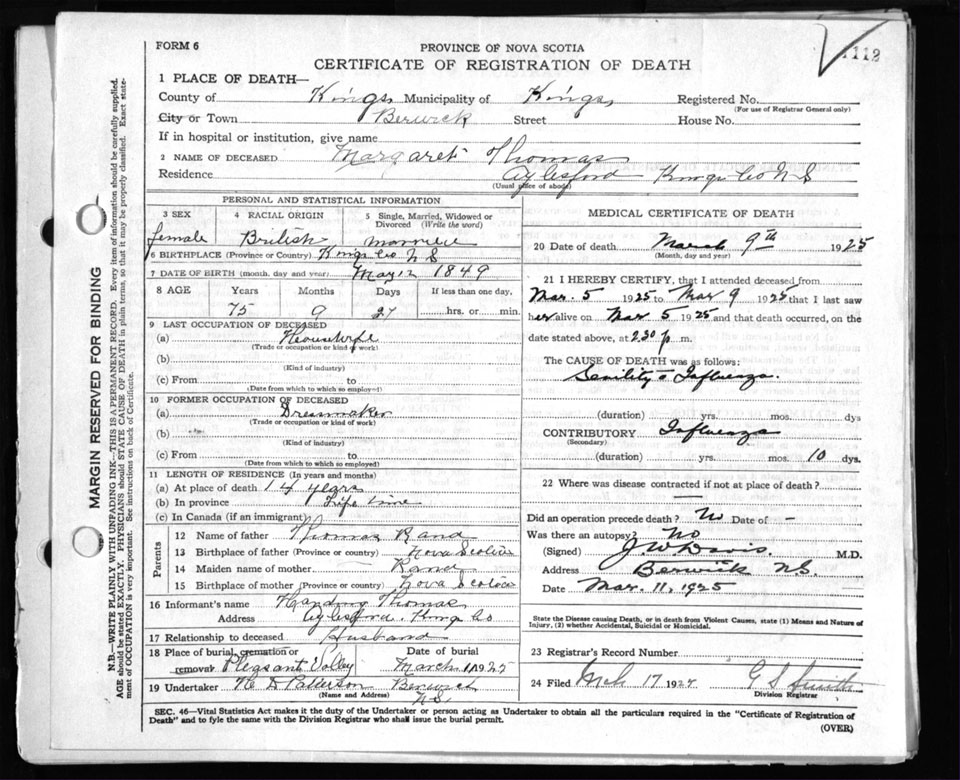 FORM 6
PROVINCE OF NOVA SCOTIA
CERTIFICATE OF REGISTRATION OF DEATH
1112
1 PLACE OF DEATH—
County of Kings Municipality of Kings Registered No.
(For use of Registrar General only)
City or Town Berwick Street House No.
If in hospital or institution, give name
2 NAME OF DECEASED Margaret Thomas
Residence Aylesford Kings Co N S
(Usual place of abode)
PERSONAL AND STATISTICAL INFORMATION
3 SEX 4 RACIAL ORIGIN 5 Single, Married, Widowed or Divorced (Write the word)
female British Married
6 BIRTHPLACE (Province or Country) Kings Co N S
7 DATE OF BIRTH (month, day and year) May 12 1849
8 AGE Years Months Days If less than one day,
75 9 27 hrs. or min.
9 LAST OCCUPATION OF DECEASED
(a) Housewife
(Trade or occupation or kind of work)
(b)
(Kind of industry)
(c) From to
(Date from which to which so employed)
10 FORMER OCCUPATION OF DECEASED
(a) Dressmaker
(Trade or occupation or kind of work)
(b)
(Kind of industry)
(c) From to
(Date from which to which so employed)
11 LENGTH OF RESIDENCE (In years and months)
(a) At place of death 14 years
(b) In province Life time
(c) In Canada (if an immigrant)
Parents
12 Name of father Thomas Rand
13 Birthplace of father (Province or country) Nova Scotia
14 Maiden name of mother Rand
15 Birthplace of mother (Province or country) Nova Scotia
16 Informant's name Harding Thomas
Address Aylesford Kings Co
17 Relationship to deceased Husband
18 Place of burial, cremation or removal Pleasant Valley Date of burial March 11 1925
19 Undertaker Patterson Berwick N S
MEDICAL CERTIFICATE OF DEATH
20 Date of death March 9th 1925
(Month, day and year)
21 I HEREBY CERTIFY, that I attended deceased from
Mar. 5 1925 to Mar 9 1925 that I last saw
her alive on Mar 5 1925 and that death occurred, on the
date stated above, at 2.30 p m.
The CAUSE OF DEATH was as follows:
Senility & Influenza.
(duration) yrs. mos. dys
CONTRIBUTORY Influenza
(Secondary)
(duration) yrs. mos. 10 dys.
22 Where was disease contracted if not at place of death?
—
Did an operation precede death? No Date of –
Was there an autopsy? No
(Signed) J W Davis. M.D.
Address Berwick N.S.
Date Mar. 11, 1925
State the Disease causing Death, or in death from Violent Causes, state (1) Means and Nature of Injury, (2) whether Accidental, Suicidal or Homicidal.
23 Registrar's Record Number
24 Filed Mch 17 1925 G S Smith
Division Registrar
SEC. 46—Vital Statistics Act makes it the duty of the Undertaker or person acting as Undertaker to obtain all the particulars required in the "Certificate of Registration of
Death" and to fyle the same with the Division Registrar who shall issue the burial permit.
(OVER)
MARGIN RESERVED FOR BINDING
N.B.—WRITE PLAINLY WITH UNFADING INK—THIS IS A PERMANENT RECORD. Every item of information should be carefully supplied.
AGE should be stated EXACTLY. PHYSICIANS should STATE CAUSE OF DEATH in plain terms, so that it may be properly classified. Exact statement of OCCUPATION is very important. See instructions on back of Certificate.